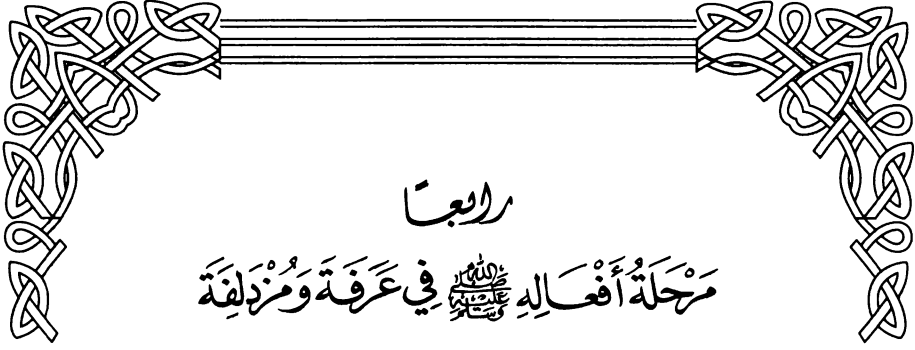 رابعًا
مَرْحَلَةُ أَفْعَالِهِ ﷺ فِي عَرَفَةَ وَمُزْدَلِفَةَ